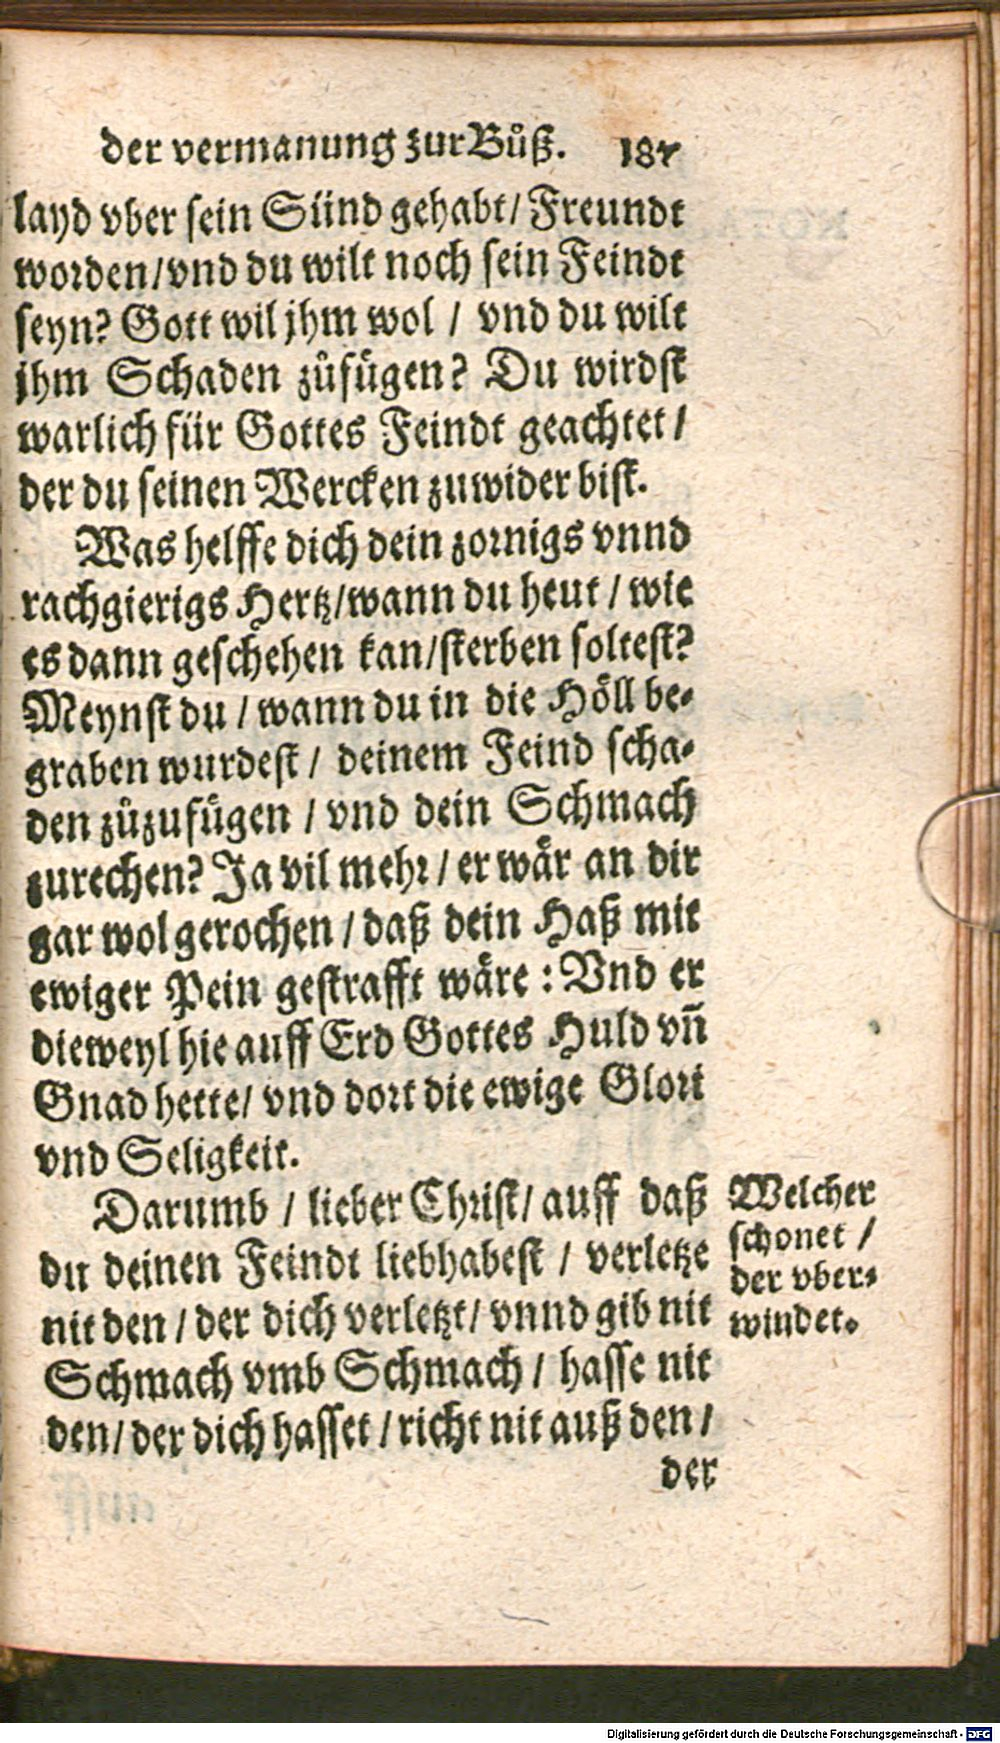 der vermanung zur Bůß. 187
layd vber sein Sünd gehabt/ Freundt
worden/vnd du wilt noch sein Feindt
seyn? Gott wil jhm wol / vnd du wilt
jhm Schaden zůfügen? Du wirdst
warlich für Gottes Feindt geachtet /
der du seinen Wercken zuwider bist.
Was helffe dich dein zornigs vnnd
rachgierigs Hertz/wann du heut / wie
es dann geschehen kan/sterben soltest?
Meynst du / wann du in die Höll be-
graben wurdest / deinem Feind scha-
den zůzufügen / vnd dein Schmach
zurechen? Ja vil mehr / er wår an dir
gar wol gerochen / daß dein Haß mit
ewiger Pein gestrafft wåre : Vnd er
dieweyl hie auff Erd Gottes Huld vñ
Gnad hette/ vnd dort die ewige Glori
vnd Seligkeit.
Darumb / lieber Christ/ auff daß
du deinen Feindt liebhabest / verletze
nit den / der dich verletzt/ vnnd gib nit
Schmach vmb Schmach / hasse nit
den/ der dich hasset / richt nit auß den /
der
Welcher
schonet /
der vber-
windet.
Digitalisierung gefördert durch die Deutsche Forschungsgemeinschaft - DFG